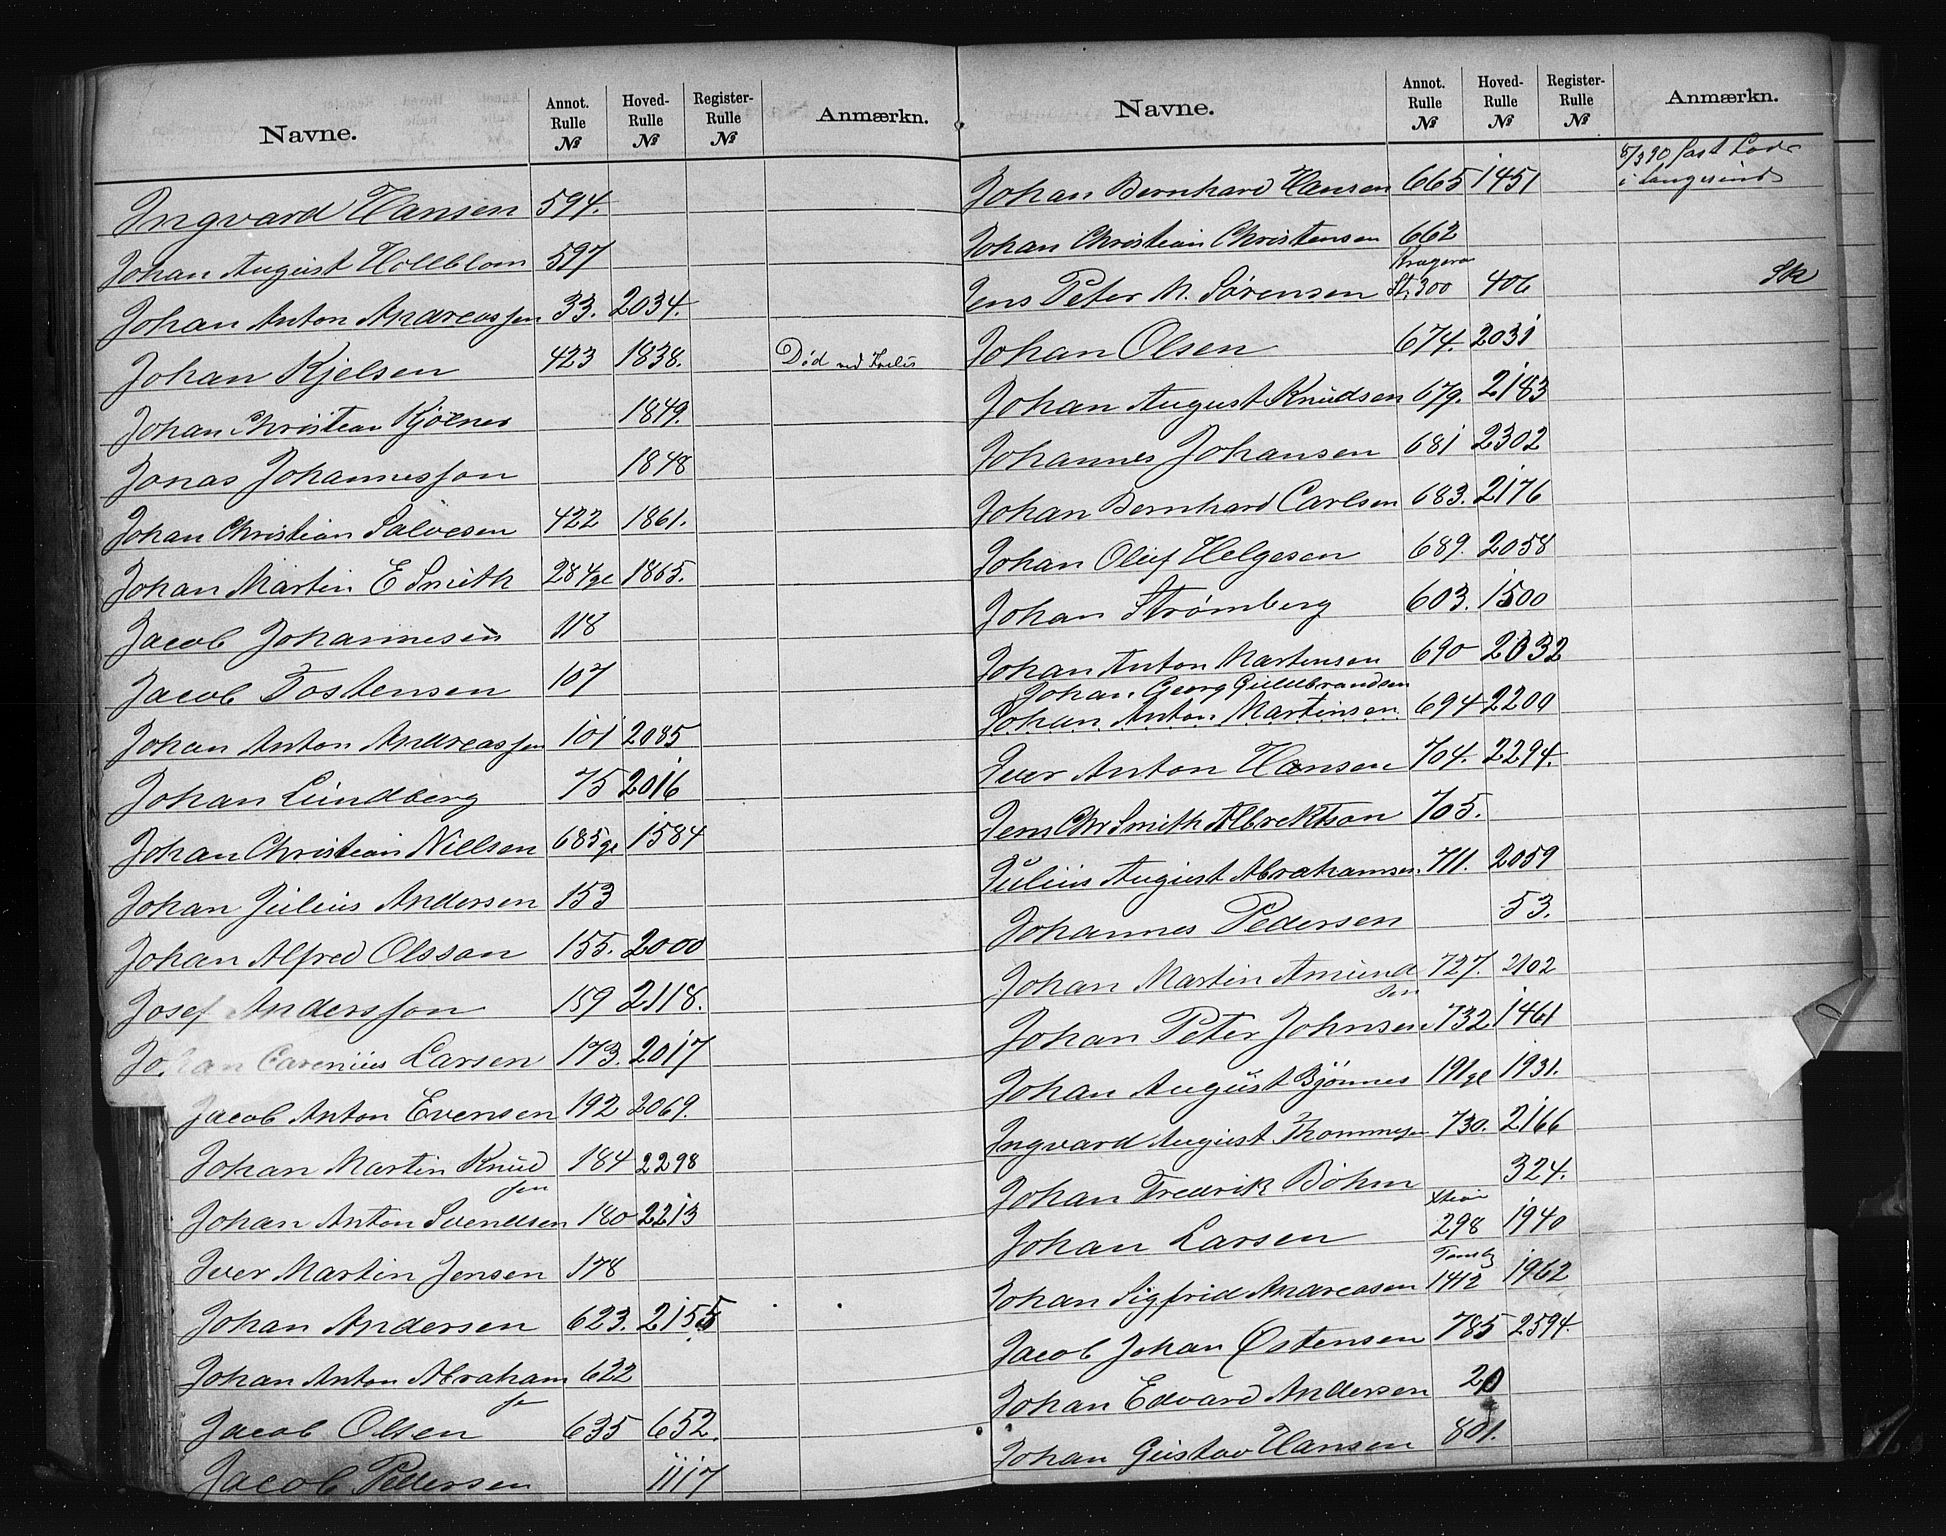 Navne. Annot. Rulle № Hoved-Rulle № Register-Rulle № Anmærkn.
Ingvard Hansen 594.
Johan August Hollblom 597
Johan Anton Andreassen 33. 2034.
Johan Kjelsen 423 1838. Död ved
Johan Christian Kjölner 1849.
Jonas Johannesson 1848
Johan Christian Salvesen 422 1861.
Johan Martin E Smith 284gl 1865.
Jacob Johannesen 118
Jacob Tostensen 107
Johan Anton Andreassen 101 2085
Johan Lundberg 75 2016
Johan Christian Nielsen 685gl 1584
Johan Julius Andersen 153
Johan Alfred Olsson 155. 2000
Josef Andersson 159 2118.
Johan Carenius Larsen 173. 2017
Jacob Anton Evensen 192 2069.
Johan Martin Knud 184 2298
sen
Johan Anton Svendsen 180 2213
Iver Martin Jensen 178
Johan Andersen 623. 2155
Johan Anton Abraham 622
sen
Jacob Olsen 635 652.
Jacob Pedersen 1117
Navne. Annot. Rulle № Hoved-Rulle № Register-Rulle № Anmærkn.
8/3 90 fast Lods
Johan Bernhard Hansen 665 1451 i Langesund
Johan Christian Christensen 662
Kragerø
Jens Peter M. Sørensen St. 300 406 Sk
Johan Olsen 674. 2031
Johan August Knudsen 679. 2183
Johannes Johansen 681 2302
Johan Bernhard Carlsen 683. 2176
Johan Oluf Helgesen 689. 2058
Johan Strømberg 603. 1500
Johan Anton Martensen 690 2032
Johan Georg Guldbrandsen
Johan Anton Martinsen 694 2200
Iver Anton Hansen 704. 2294.
Jens Chr Smith Albrektson 705.
Julius August Abrahamsen 711. 2059
Johannes Pedersen 53.
Johan Martin Amund 727. 2102
sen
Johan Peter Johnsen 732 1461
Johan August Bjønnes 191gl 1931.
Ingvard August Thommesen 730. 2166
Johan Fredrik Böhm 324.
Johan Larsen 298 1940
Tønsbg
Johan Sigfrid Andreasen 1412 1962
Jacob Johan Østensen 785 2594.
Johan Edvard Andersen 20
Johan Gustav Hansen 801.